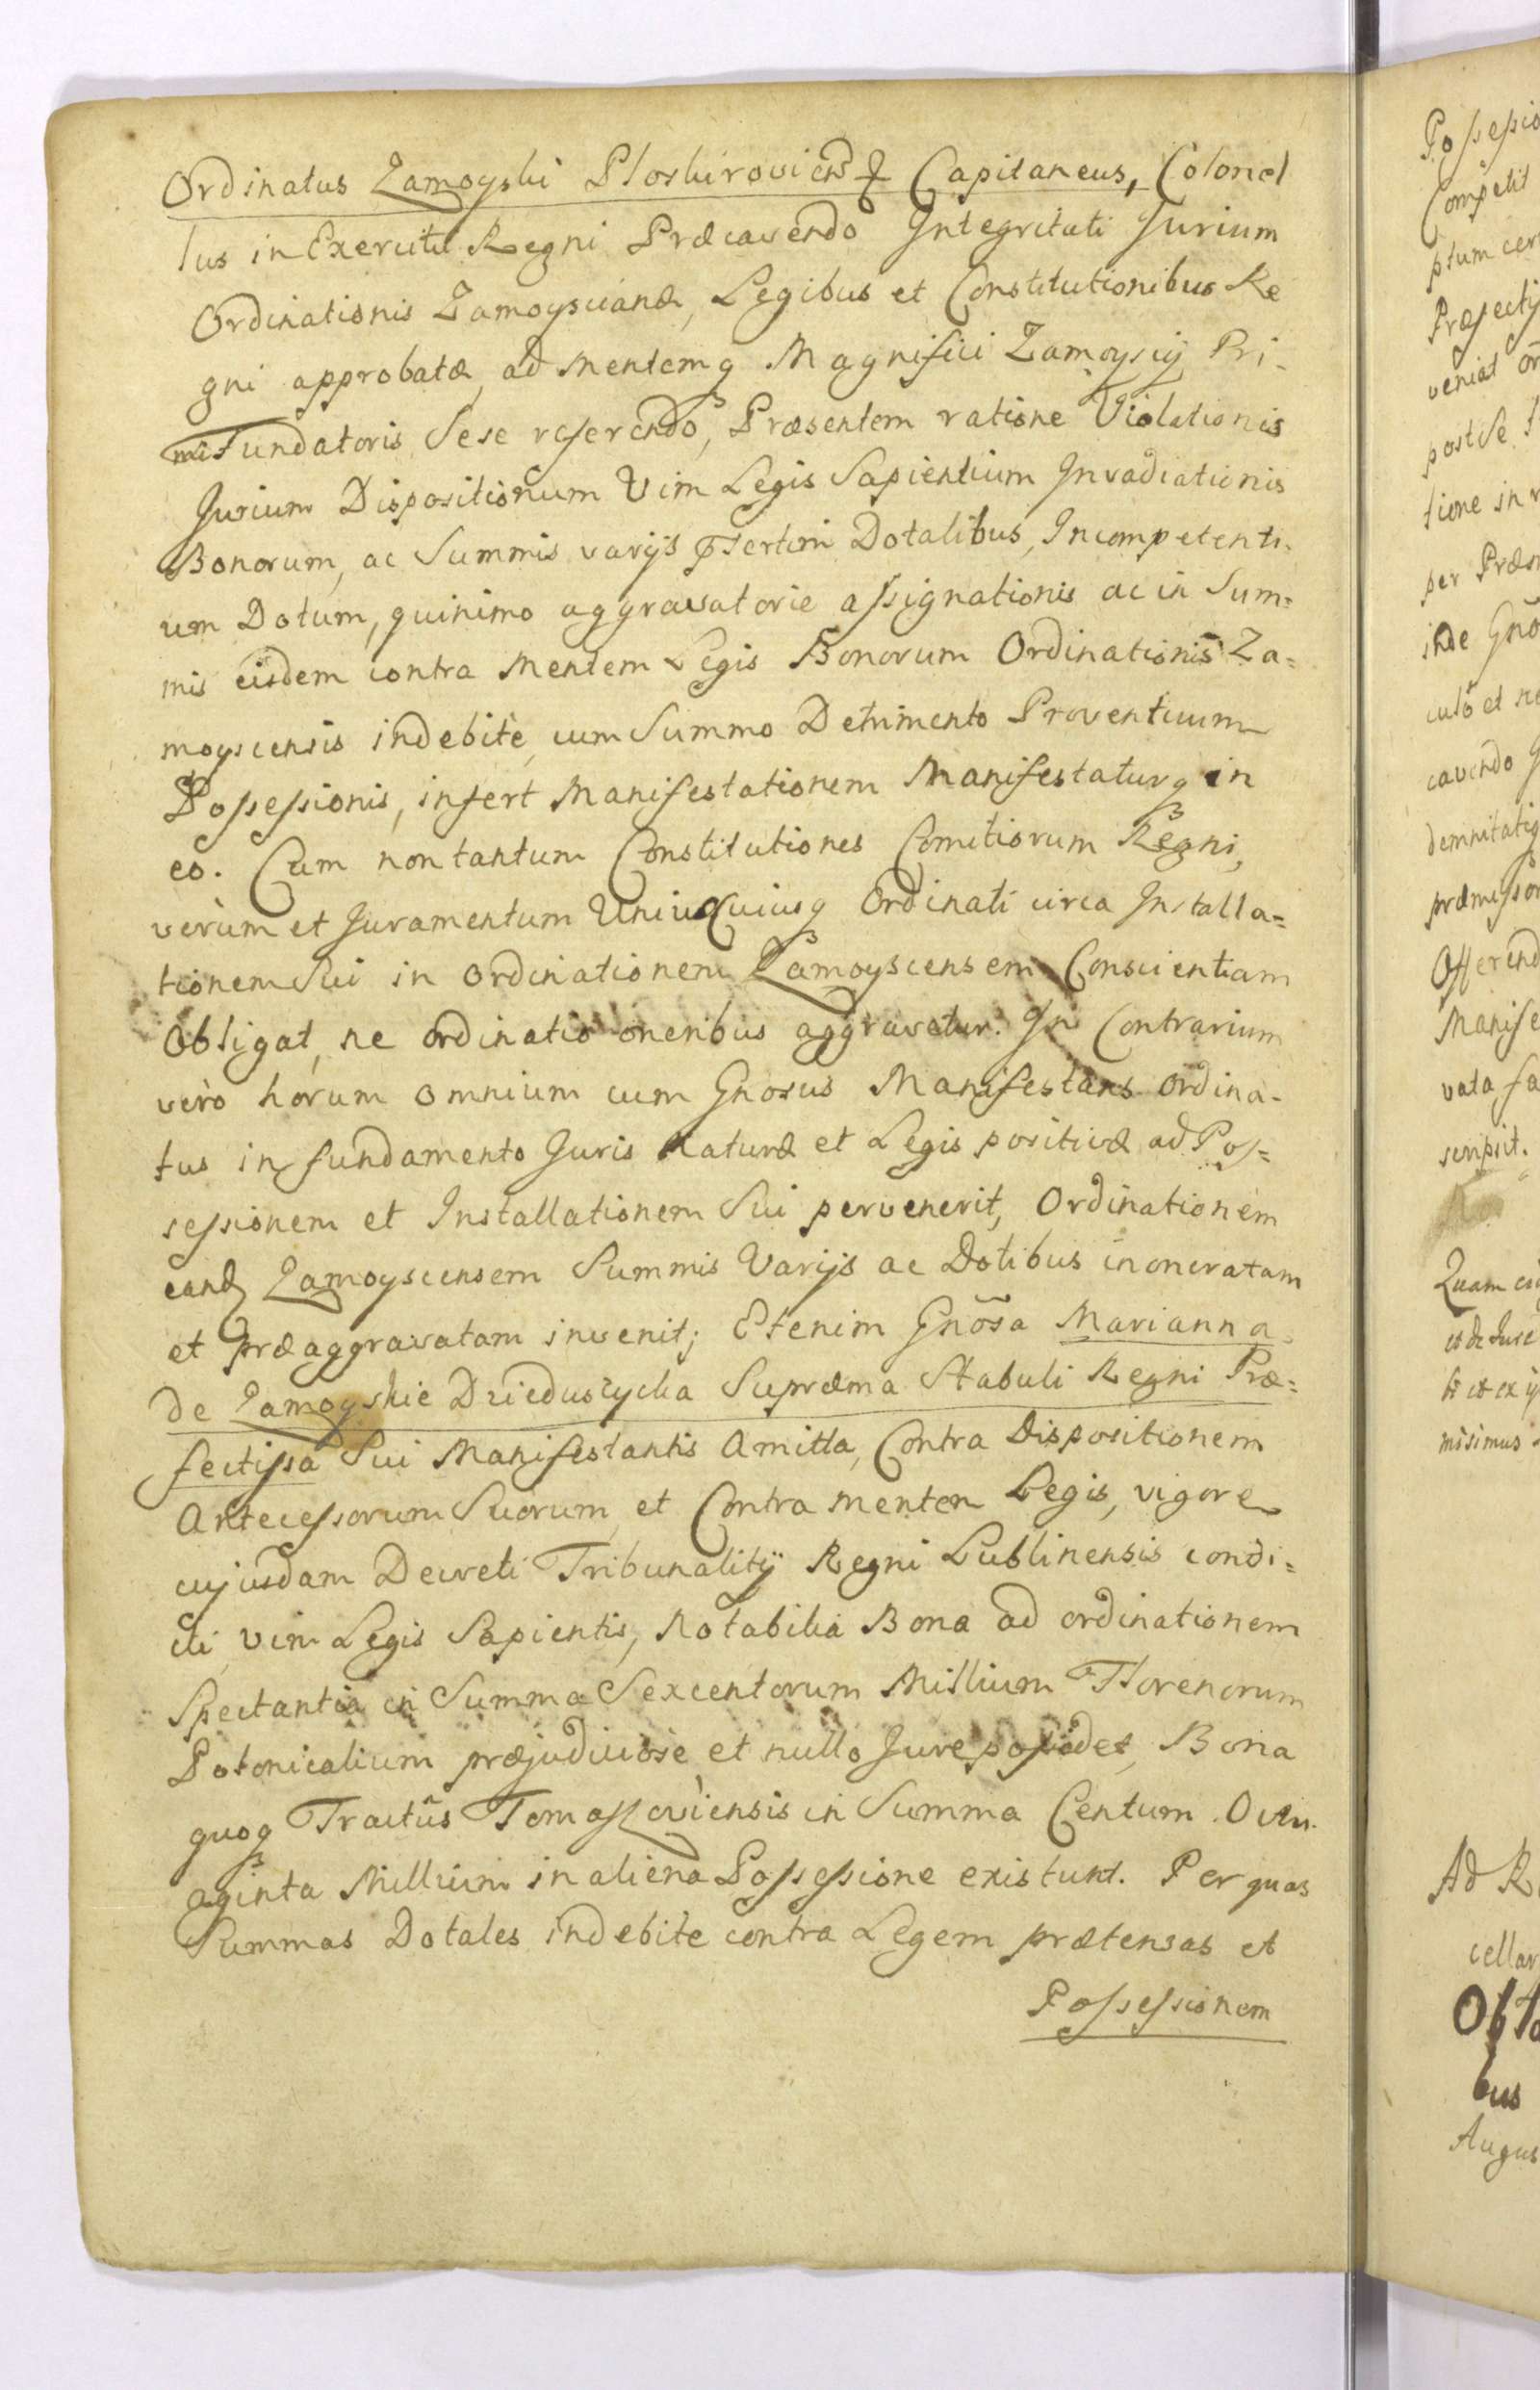 Ordinatus Zamoyski Ploskiroviens Capitaneus, Colonel
lus in Exercitu Regni Præcavendo Integritati Jurium
Ordinationis Zamoyscianæ, Legibus et Constitutionibus Re
gni approbatæ, ad Mentemq3 Magnifici Zamoyscij Pri-
mi Fundatoris Sese referendo, Præsentem ratione Violationis
Jurium Dispositionum Vim Legis Sapientium Invadiationis
Bonorum, ac Summis varijs Dotalibus, Incompetenti-
um Dotum, quinimo aggravatorie assignationis ac in Sum=
mis eisdem contra Mentem Legis Bonorum Ordinationis Za=
moyscensis indebitè cum Summo Detrimento Proventuum
Possessionis, infert Manifestationem Manifestaturq3 in
eo. Cum non tantum Constitutiones Comitiorum Regni,
verùm et Juramentum Uniuscuiusq3 Ordinati circa Installa=
tionem Sui in Ordinationem Zamoyscensem Conscientiam
Obligat, ne ordinatio oneribus aggravetur. In Contrarium
verò horum omnium cum Gnosus Manifestans Ordina-
tus in fundamento Juris Naturæ et Legis positivæ ad Pos=
sessionem et Installationem Sui pervenerit, Ordinationem
eand Zamoyscensem Summis Varijs ac Dotibus inoneratam
et præaggravatam invenit; Etenim Gnõsa Marianna
de Zamoyskie Dzieduszycka Supræma Stabuli Regni Præ=
fectissa Sui Manifestantis Amitta, Contra Dispositionem
Antecessorum Suorum, et Contra mentem Legis, vigore
cujusdam Decreti Tribunalitij Regni Lublinensis condi=
cti vim Legis Sapientis, Notabilia Bona ad ordinationem
Spectantia in Summa Sexcentorum Millium Florenorum
Polonicalium præjudiciosè et nullo Jure possidet, Bona
quoq3 Tractûs Tomaszoviensis in Summa Centum Octu-
aginta Millium in aliena Possessione existunt. Per quas
Summas Dotales indebite contra Legem prætensas et
Possessionem
Possessio
Competit
ptum
veniat
post se
tione in
per
inde
et
cavendo
præmisso
Offerend
Manife
vata
scripsit.
Quam
et de Jure
misimus
Ad R
cellar
bus
Augus